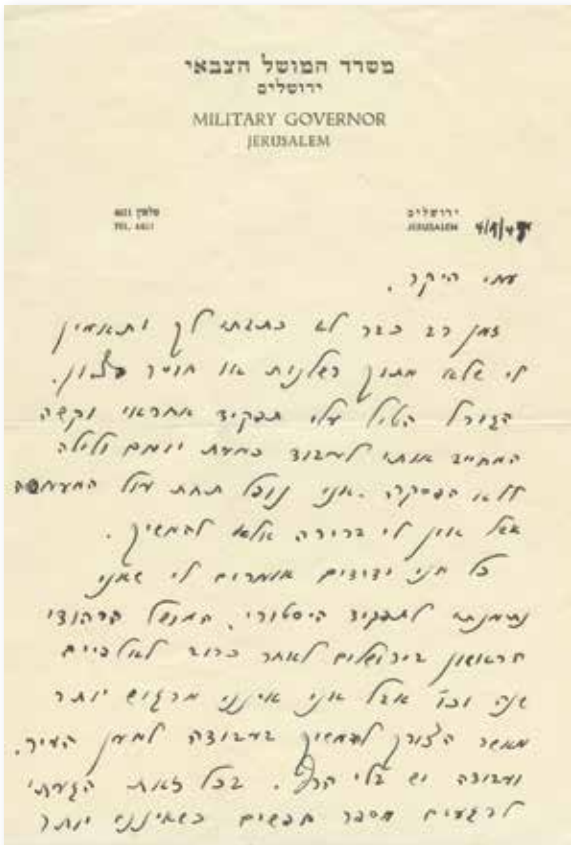 משרד המושל הצבאי
ירושלים
MILITARY GOVERNOR
JERUSALEM
טלפון 4611
TEL. 4611
ירושלים
JERUSALEM
עמי היקר,
זמן רב כבר לא כתבתי לך ותאמין
לי שלא מתוך רשלנות או חוסר רצון.
הגורל הטיל עלי תפקיד אחראי וקשה
המחייב אותי לעבוד כמעט יומם ולילה
ללא הפסקה. אני תחת עול המעמסה
אבל אין לי ברירה אלא להמשיך.
כל מני ידידים אומרים לי שאני
נזדמנתי לתפקיד היסטורי, המושל היהודי
הראשון בירושלים לאחר קרוב לאלפיים
שנה וכו' אבל אני אינני מרגיש יותר
מאשר הצורך להמשיך בעבודה למען העיר.
ועבודה יש בלי הרף. בכל זאת הגעתי
לרגעים מספר חפשים כשאינני יותר